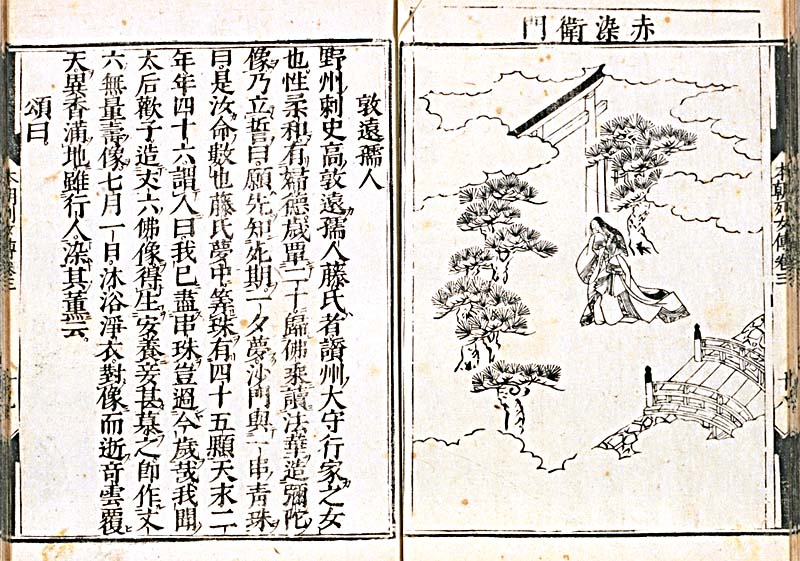 赤染衛門
敦遠孺人
野州刺史高敦遠孺人藤氏者讃州大守行家之女
也性柔和有婦德歲覃二十歸佛乘讀法華造彌陀
像乃立誓曰願先知死期一夕夢沙門與一串青珠
曰是汝命數也藤氏夢中筭珠有四十五顆天永二
年年四十六謂人曰我已盡串珠豈過今歲哉我聞
太后歡子造丈六佛像得生安養妾甚慕之即作丈
六無量壽像七月一日沐浴淨衣對像而逝奇雲覆
天異香滿地雖行人染其薰云
頌曰